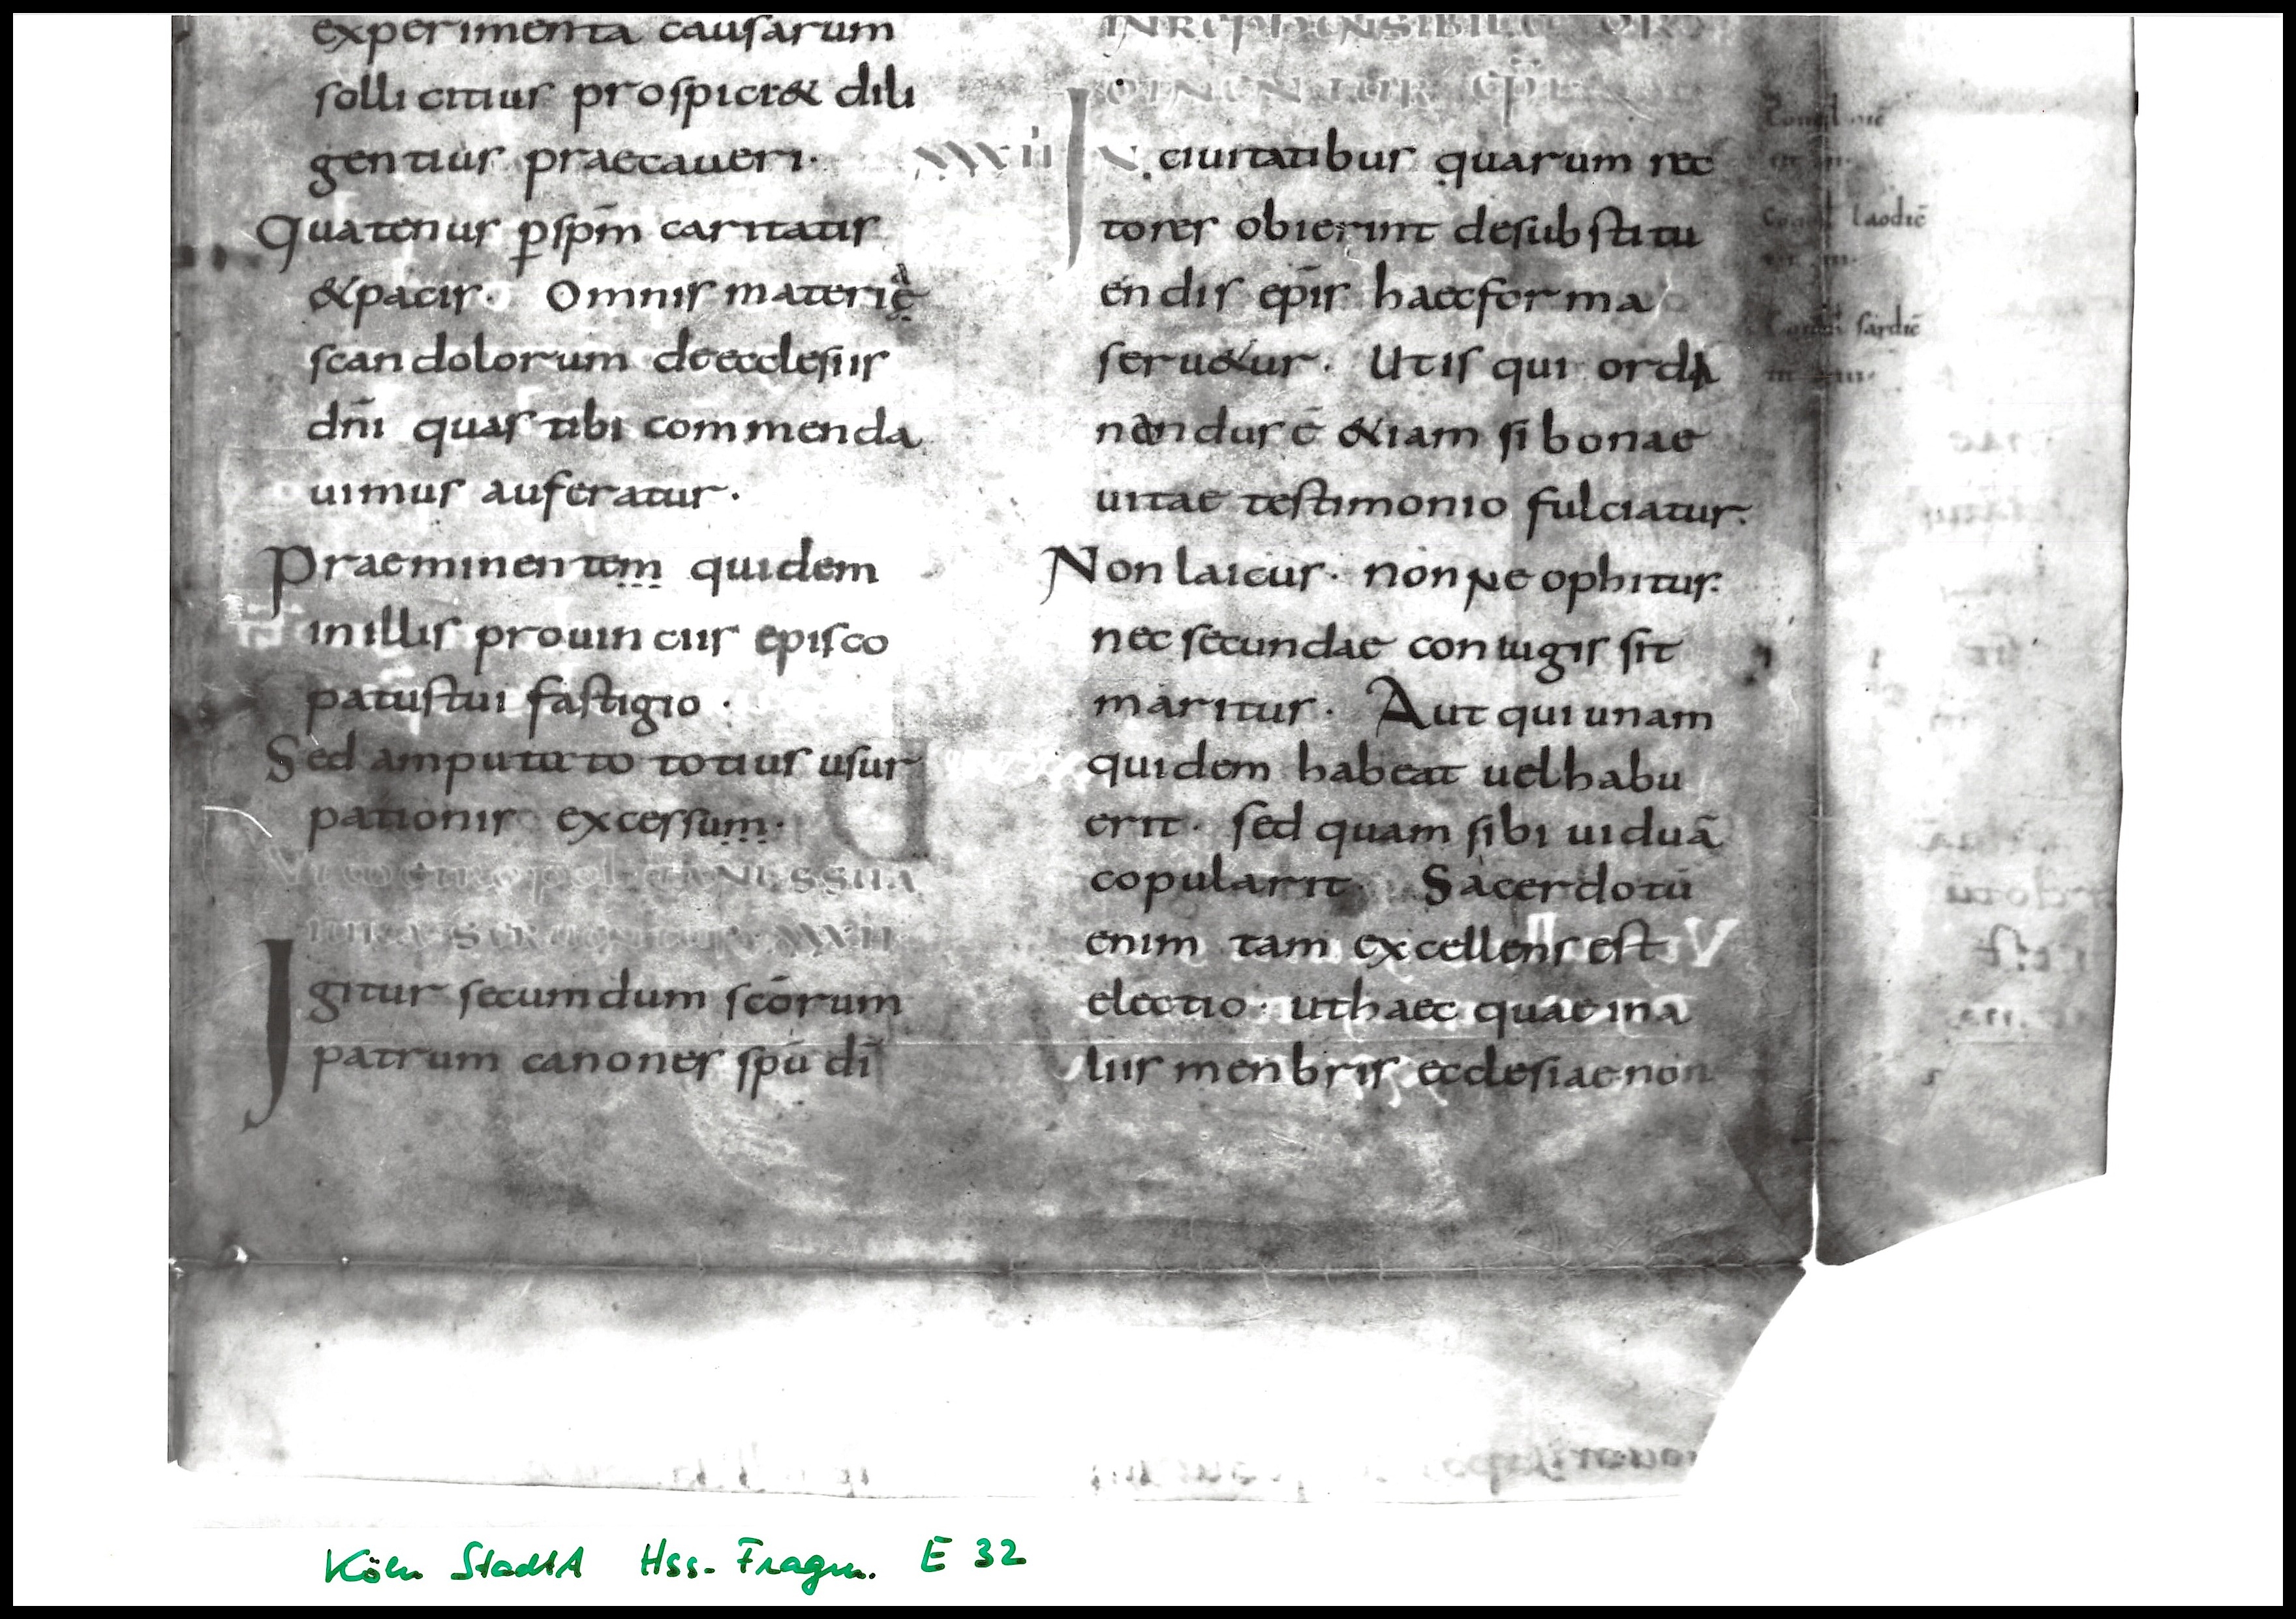 experimenta causarum
sollicitius prospici& dili
gentius praecaueri·
Quatenus p̱sp̄m caritatis
&pacis· Omnis materię
scandolorum deecclesiis
dn̄i quas tibi commenda
uimus auferatur·
Praeminentem quidem
inillis prouinciis episco
patustui fastigio·
Sed amputato totius usur
pationis excessum·
Igitur secumdum sc̄orum
patrum canones sp̄u dī
XXXVii
IN ciuitatibus quarum rec
tores obierint desubstitu
endis ep̄is haecforma
seru&ur· Utis qui ordi
nandus ē &iam si bonae
uitae testimonio fulciatur·
Non laicus· non neophitus·
nec secundae coniugis sit
maritus· Aut qui unam
quidem habeat uelhabu
erit· sed quam sibi uiduā
copularit· Sacerdotū
enim tam excellens est
electio· uthaec quae ina
liis menbris ecclesiae non
laodic̄
sardic̄
Köln StadtA Hss.-Fragm. E 32